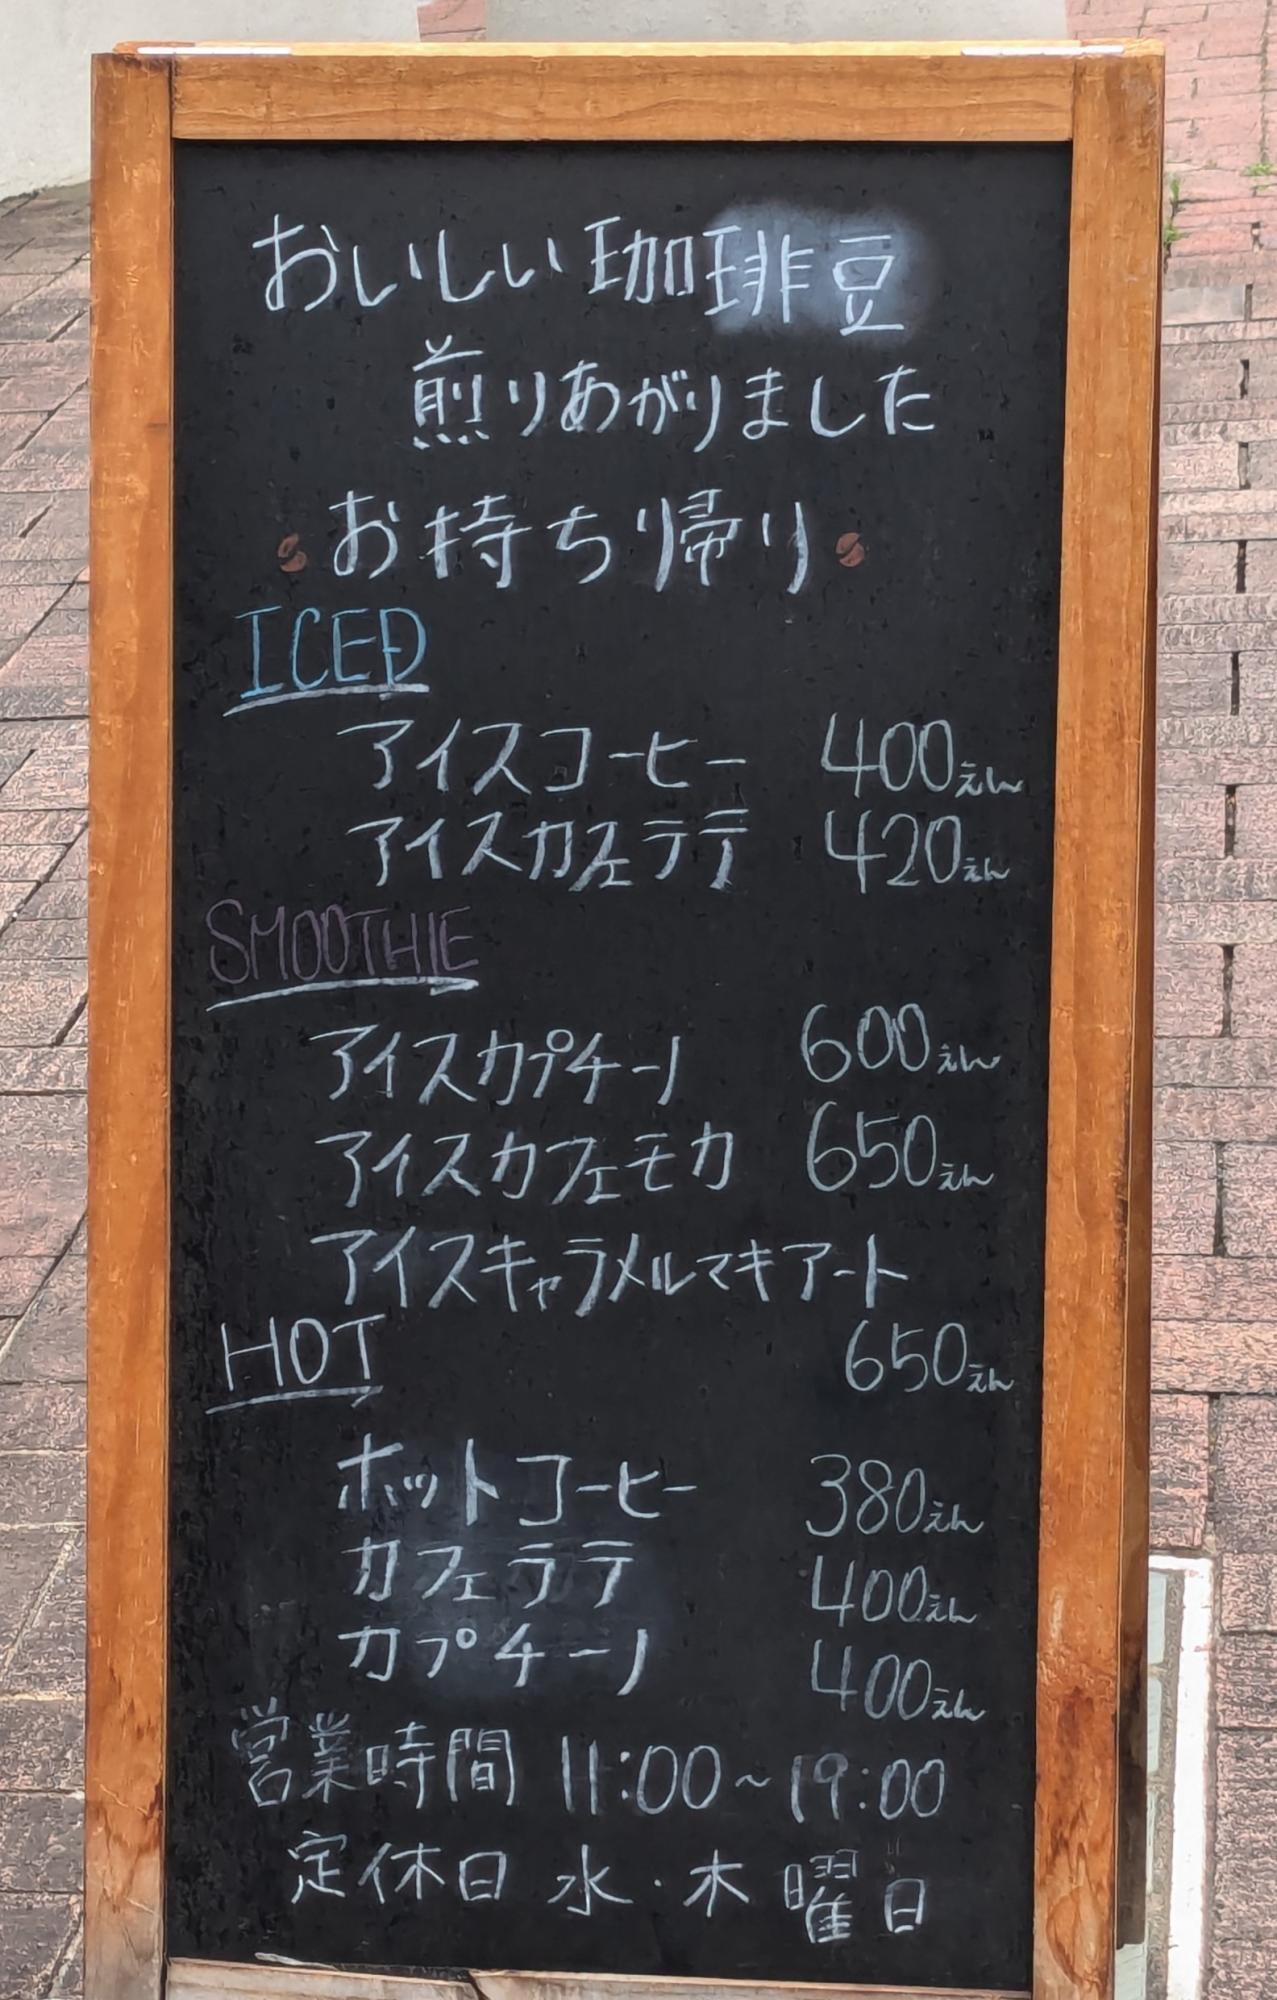 おいしい珈琲豆
煎りあがりました
お持ち帰り
ICED
アイスコーヒー 400えん
アイスカフェラテ 420えん
SMOOTHIE
アイスカプチーノ 600えん
アイスカフェモカ 650えん
アイスキャラメルマキアート
650えん
HOT
ホットコーヒー 380えん
カフェラテ 400えん
カプチーノ 400えん
営業時間 11:00~19:00
定休日 水・木曜日